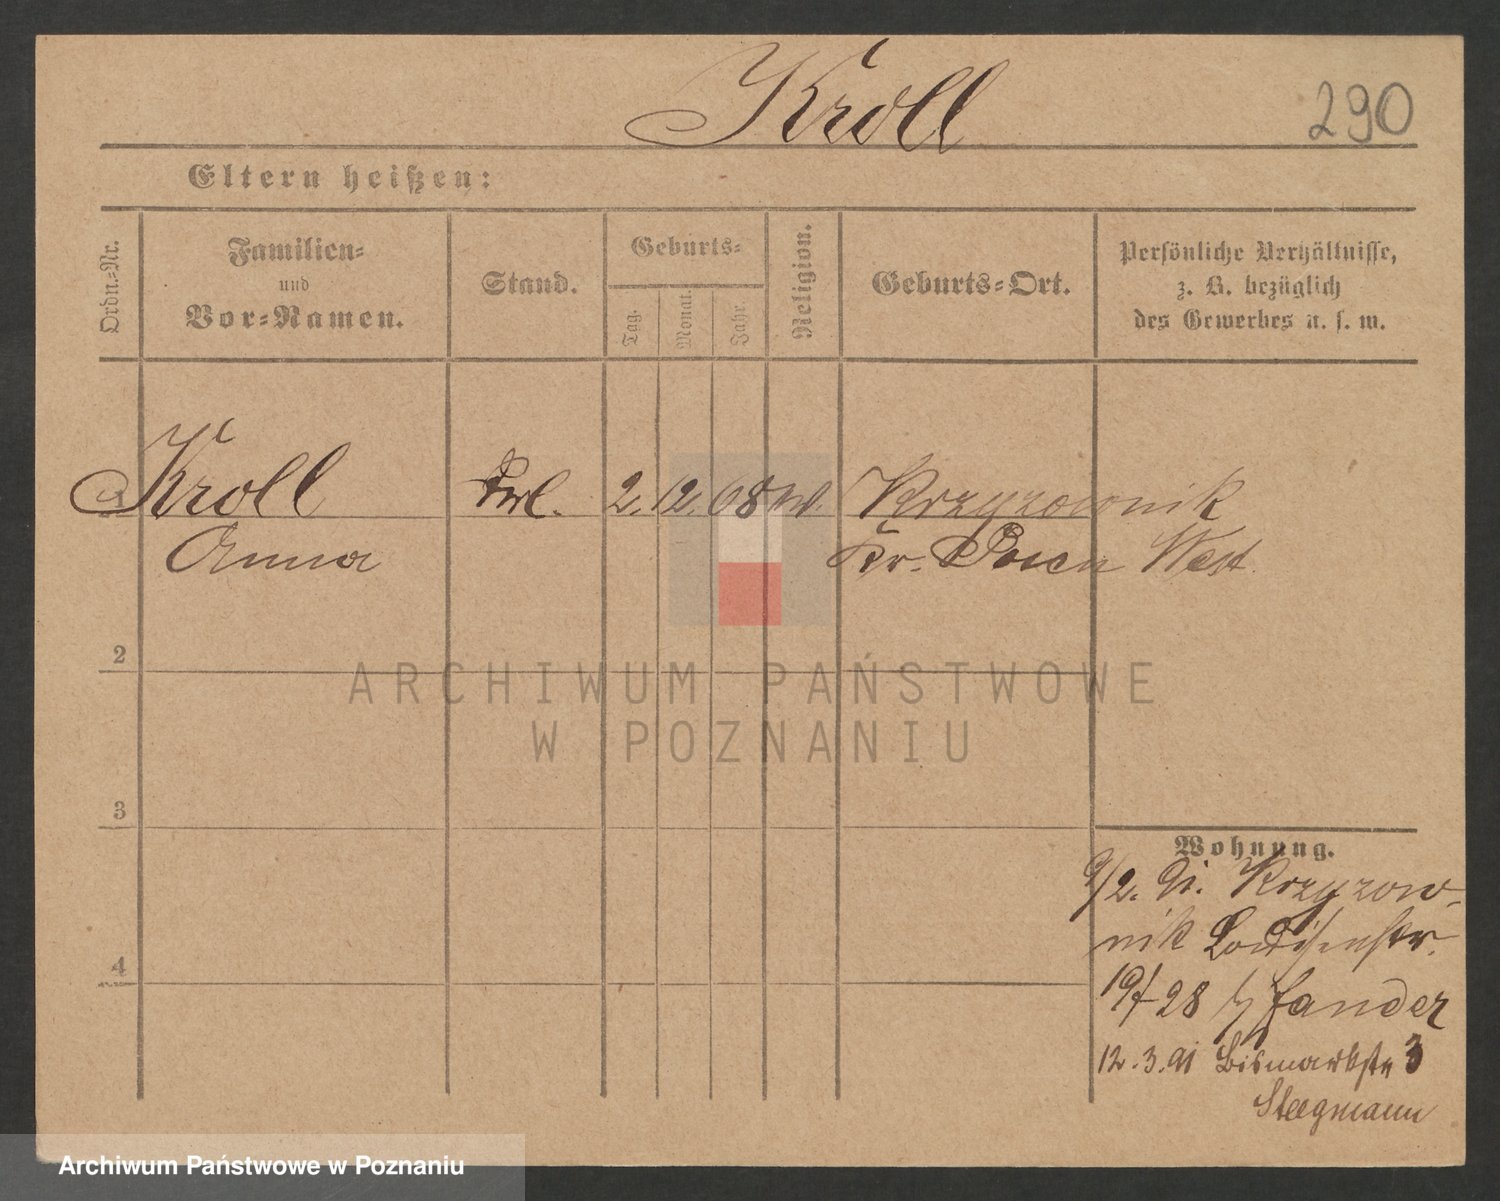 Kroll
290
Eltern heißen:
Ordn.-Nr.
Familien-
und
Vor-Namen.
Stand.
Geburts-
Tag.
Monat.
Jahr.
Religion.
Geburts-Ort.
Persönliche Verhältnisse,
z. B. bezüglich
des Gewerbes u. s. w.
1
Kroll
Anna
2. 12. 68
Krzyzownik
Kr. Posen West
2
ARCHIWUM PAŃSTWOWE
W POZNANIU
3
Wohnung.
9/2. 91. Krzyzow-
nik Louisenstr.
19/ 28 Pfander
4
12. 3. 91 Bismarkstr 3
Steegmann
Archiwum Państwowe w Poznaniu